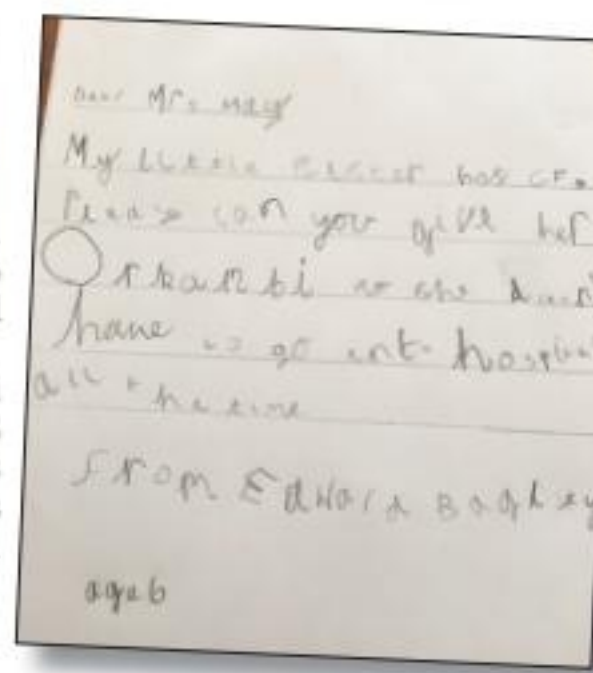 Dear Mrs May
My little sister has CF.
Please can you give her
Orkanbi so she
have to go into hospital
all the time
From Edward Bagley
age 6